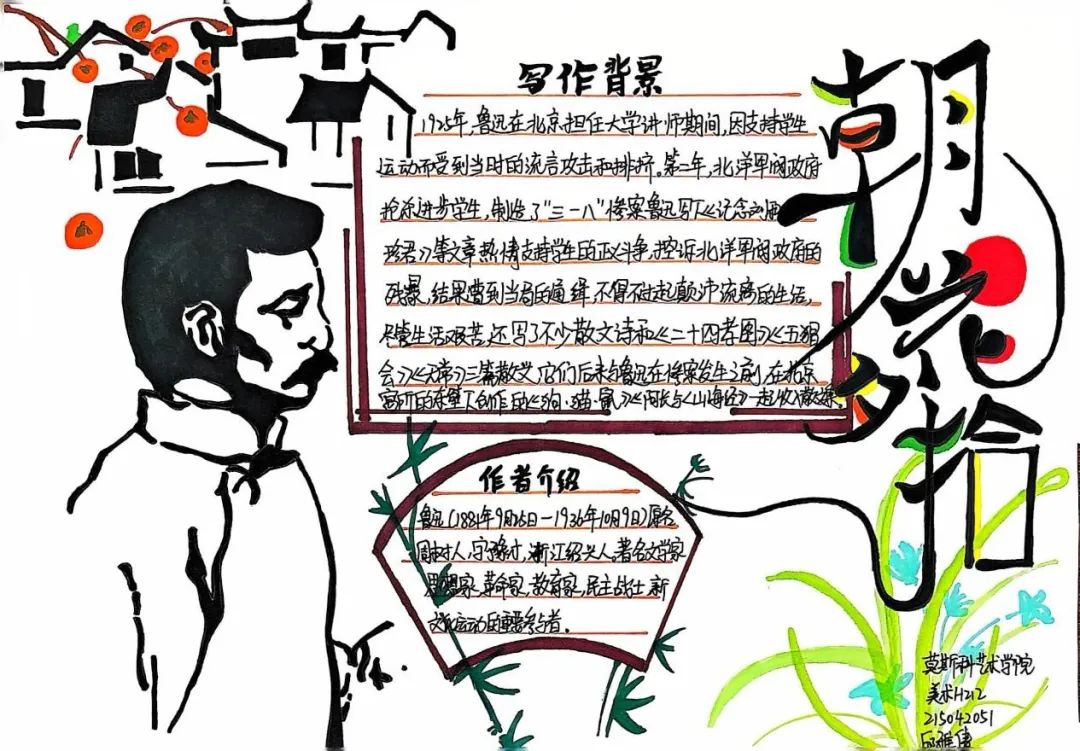 朝花夕拾
写作背景
1925年,鲁迅在北京担任大学讲师期间,因支持学生
运动而受到当时的流言攻击和排挤。第二年,北洋军阀政府
枪杀进步学生,制造了"三一八"惨案鲁迅写下《记念刘
珍君》等文章热情支持学生的正义斗争,控诉北洋军阀政府的
残暴,结果遭到当局的通缉,不得不过起颠沛流离的生活,
尽管生活艰苦,还写了不少散文诗和《二十四孝图》《五猖
会》《无常》三篇散文,它们后来与鲁迅在惨案发生之前,在北京
寓所的东壁下创作的《狗·猫·鼠》《阿长与《山海经》一起收入散文集。
作者介绍
鲁迅(1881年9月25日-1936年10月9日)原名
周树人,字豫才,浙江绍兴人。著名文学家
思想家,革命家,教育家,民主战士,新
文化运动的重要参与者。
莫斯科艺术学院
美术H212
215042051